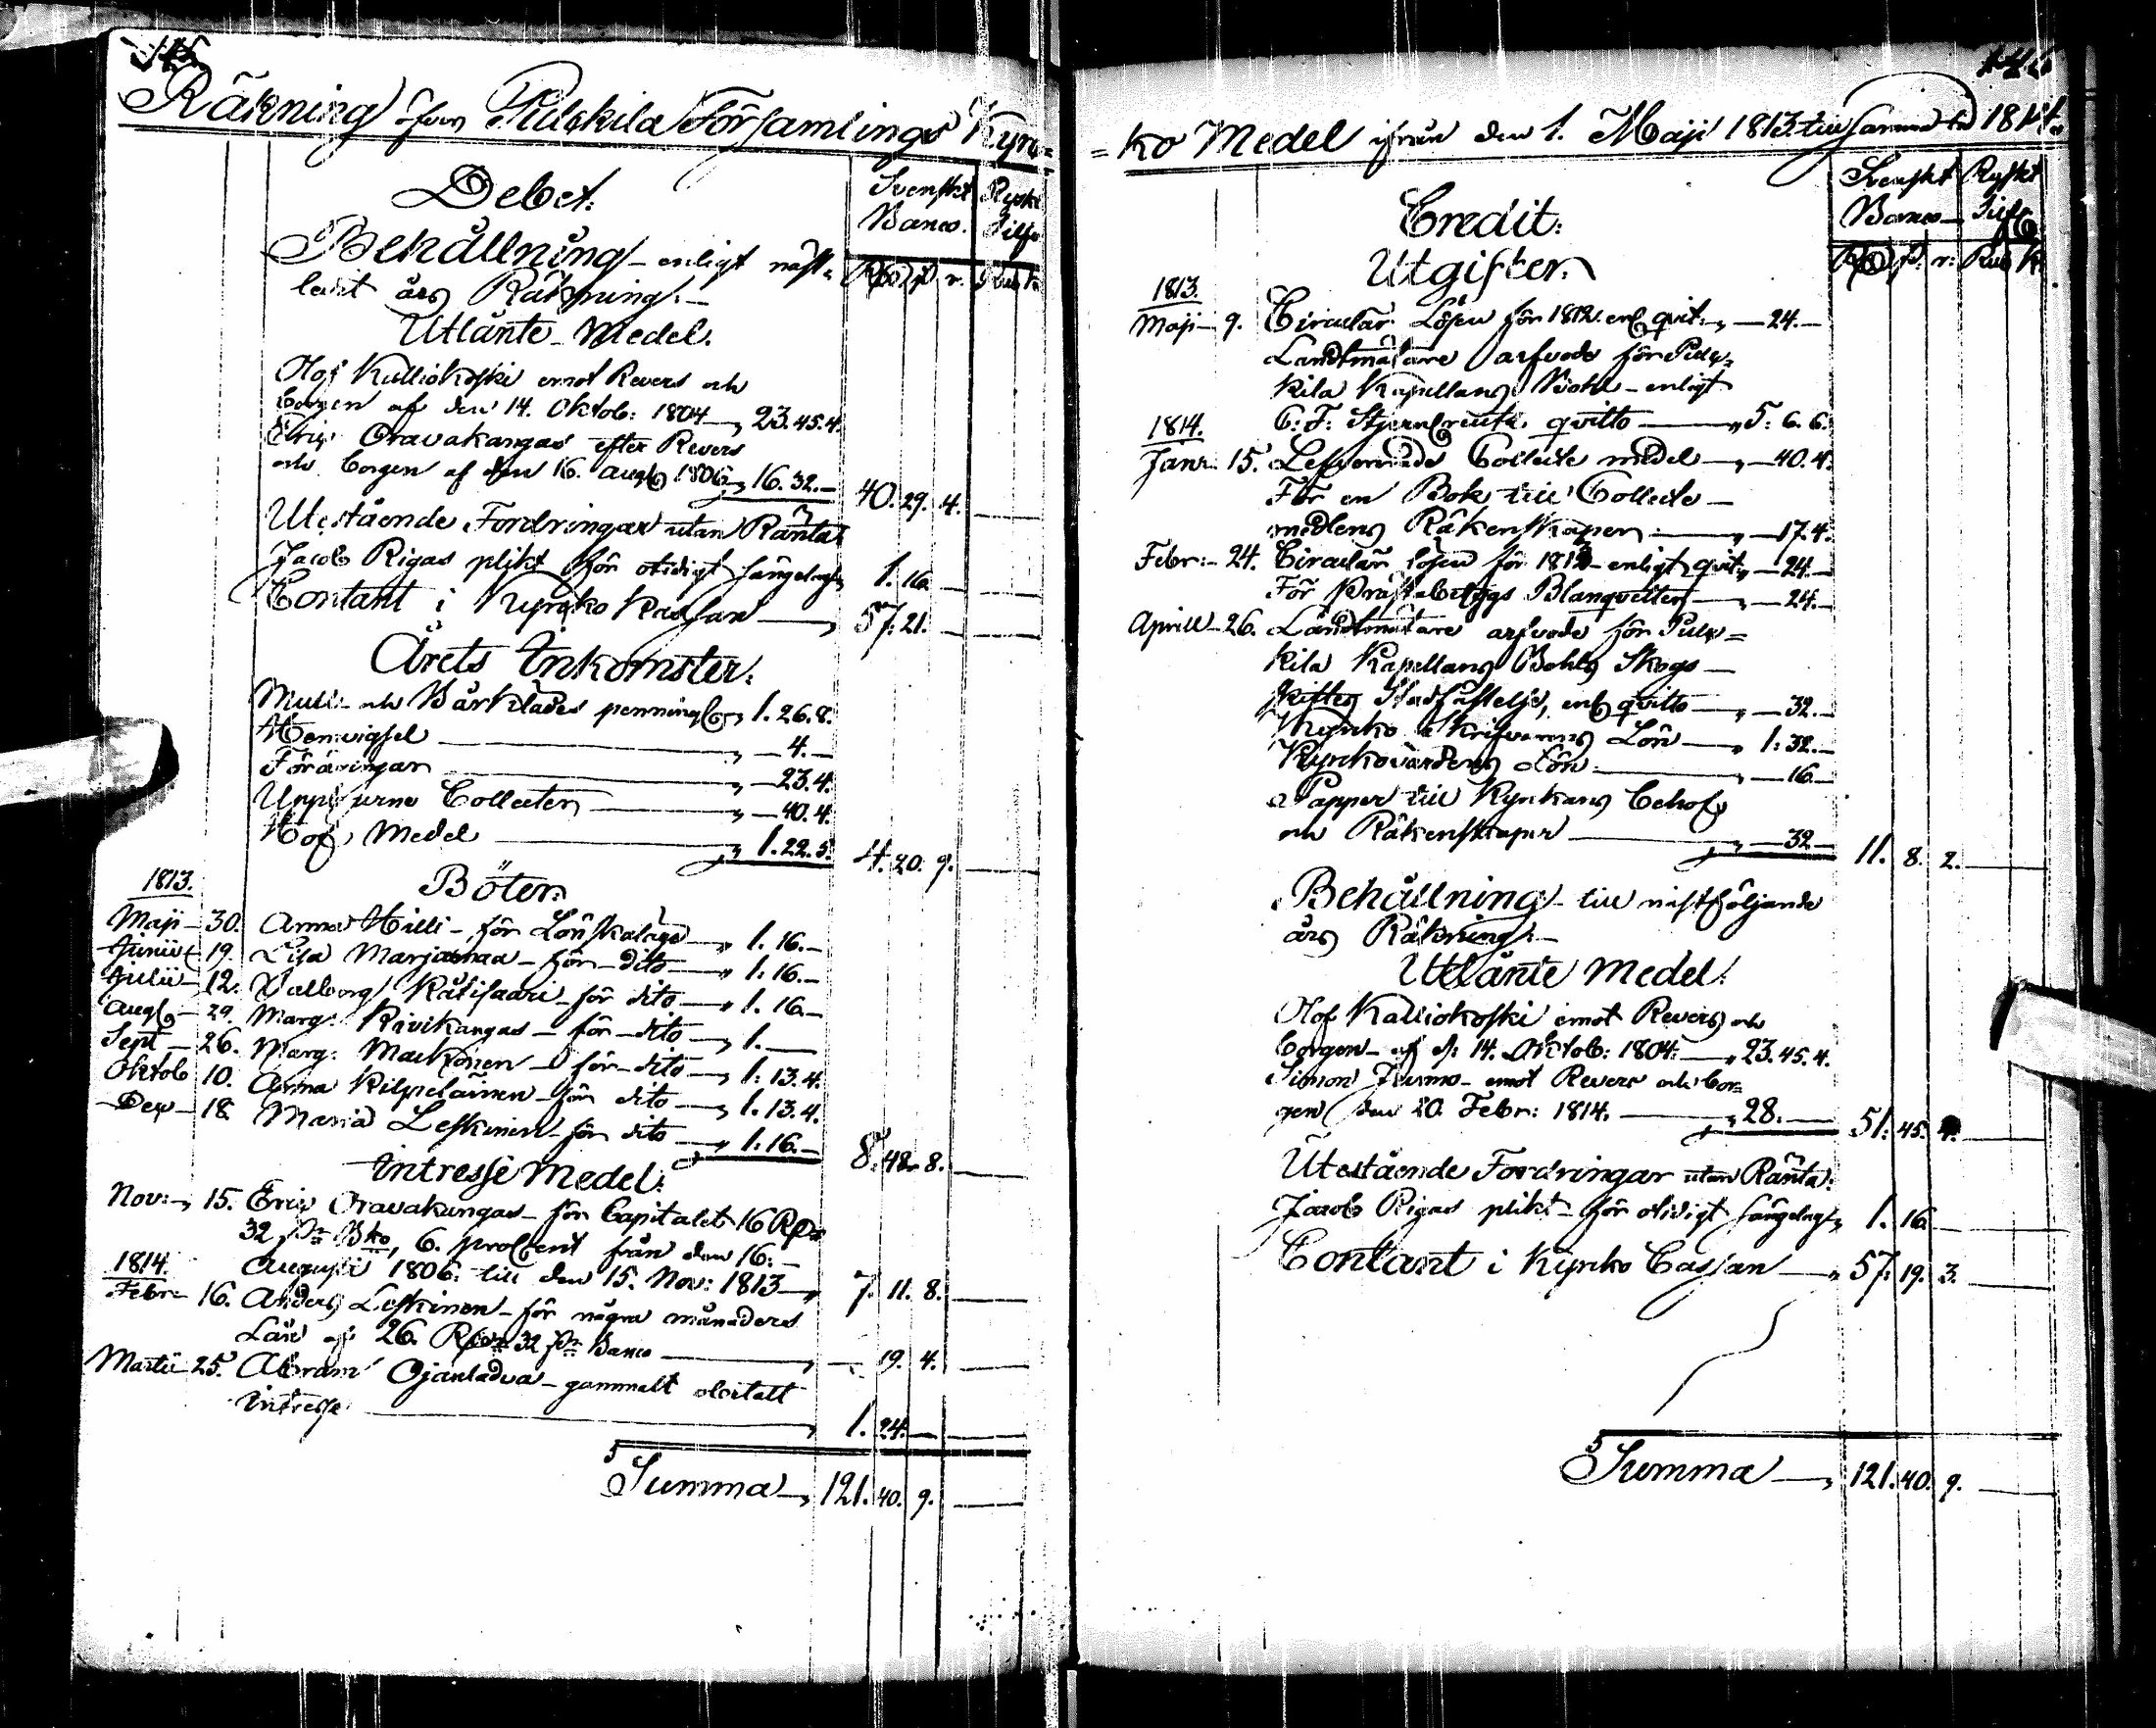 145.
Räkning öfver Pulckila Församlings Kyrc=
Debet:
Svenskt Banco.
Ryskt Silfr
Behållning enligt näst=
Rdr ß r. Rub K.
ledit års Räkning.
Utlånte Medel.
Olof Kalliokoski emot Revers och
borgen af den 14. Oktob: 1804 — 23.45.4.
Eric Oravakangas efter Revers
och borgen af den 16. Aug: 1806 — 16.32.— 40. 29. 4.
Utestående Fordringar utan Ränta
Jacob Rigas plikt för otidigt sängelag 1. 16.
Contant i Kyrcko Kassan — 57. 21.
Årets Inkomster.
Mull- och Bårklädes penning — 1. 26. 8.
Hemvigsel — 4.—
Föräringar — 23.4.
Uppburne Collecter — 40.4.
Hof Medel — 1. 22. 5. 4. 20. 9.
Böter.
1813.
Maji — 30. Anna Hilli — för Lönskaläge — 1. 16.—
Junii 19. Lisa Marjamaa — för dito — 1: 16.—
Julii — 12. Valborg Kätisaari — för dito — 1. 16.—
Aug — 29. Marg: Kivikangas — för dito — 1.—
Sept — 26. Marg: Markonen — för dito — 1: 13.4.
Oktob 10. Anna Kilpeläinen — för dito — 1. 13.4.
Dec — 18. Maria Leskinen — för dito — 1: 16.— 8. 42. 8.
Intresse Medel.
Nov: 15. Eric Oravakangas — för Capitalet 16 Rdr
32 ß Bko, 6. proCent från den 16.
Augusti 1806. till den 15. Nov: 1813 — 7. 11. 8.
1814.
Febr 16. Anders Leskinen — för några månaders
Lån af 26. Rdr 32 ß Banco — 19. 4.
Martii 25. Abram Ojanladva — gammalt obetalt
intresse — 1. 24.
Summa — 121. 40. 9.
146
=ko Medel ifrån den 1. Maji 1813. till samma tid 1814.
Credit.
Svenskt Banco
Ryskt Silfr
Utgifter.
Rdr ß r: Rub K.
1813.
Maji — 9. Circulär Lösen för 1812. enl qvit. — 24.—
Landtmätare arfvode för Pulc=
kila Kapellans Bohl — enligt
1814. C: F: Stjerncreutz qvitto — 5: 6. 6.
Janr. 15. Lefvererade Collecte medel — 40. 4.
För en Bok till Collecte —
medlens Räkenskaper — 17. 4.
Febr: — 24. Circulär lösen för 1813 — enligt qvit — 24.—
För Prästabetygs Blanqvetter — 24.—
Aprill — 26. Landtmätare arfvode för Pulc=
kila Kapellans Bohls Skogs —
skiftes Stadfästelse, enl qvitto — 32.—
Kyrcko Skrifvarens Lön — 1: 32.—
Kyrckovärdens Lön — 16.—
Papper till Kyrkans behof
och Räkenskaper — 32.— 11. 8. 2.
Behållning till nästföljande
års Räkning.
Utlånte Medel.
Olof Kalliokoski emot Revers och
borgen — af d: 14. Oktob: 1804. — 23.45.4.
Simon Jurmo — emot Revers och bor=
gen den 20. Febr: 1814. — 28. — 51. 45. 4.
Utestående Fordringar utan Ränta.
Jacob Rigas plikt — för otidigt sängelag 1. 16.
Contant i Kyrko Cassan — 57. 19. 3.
Summa — 121. 40. 9.